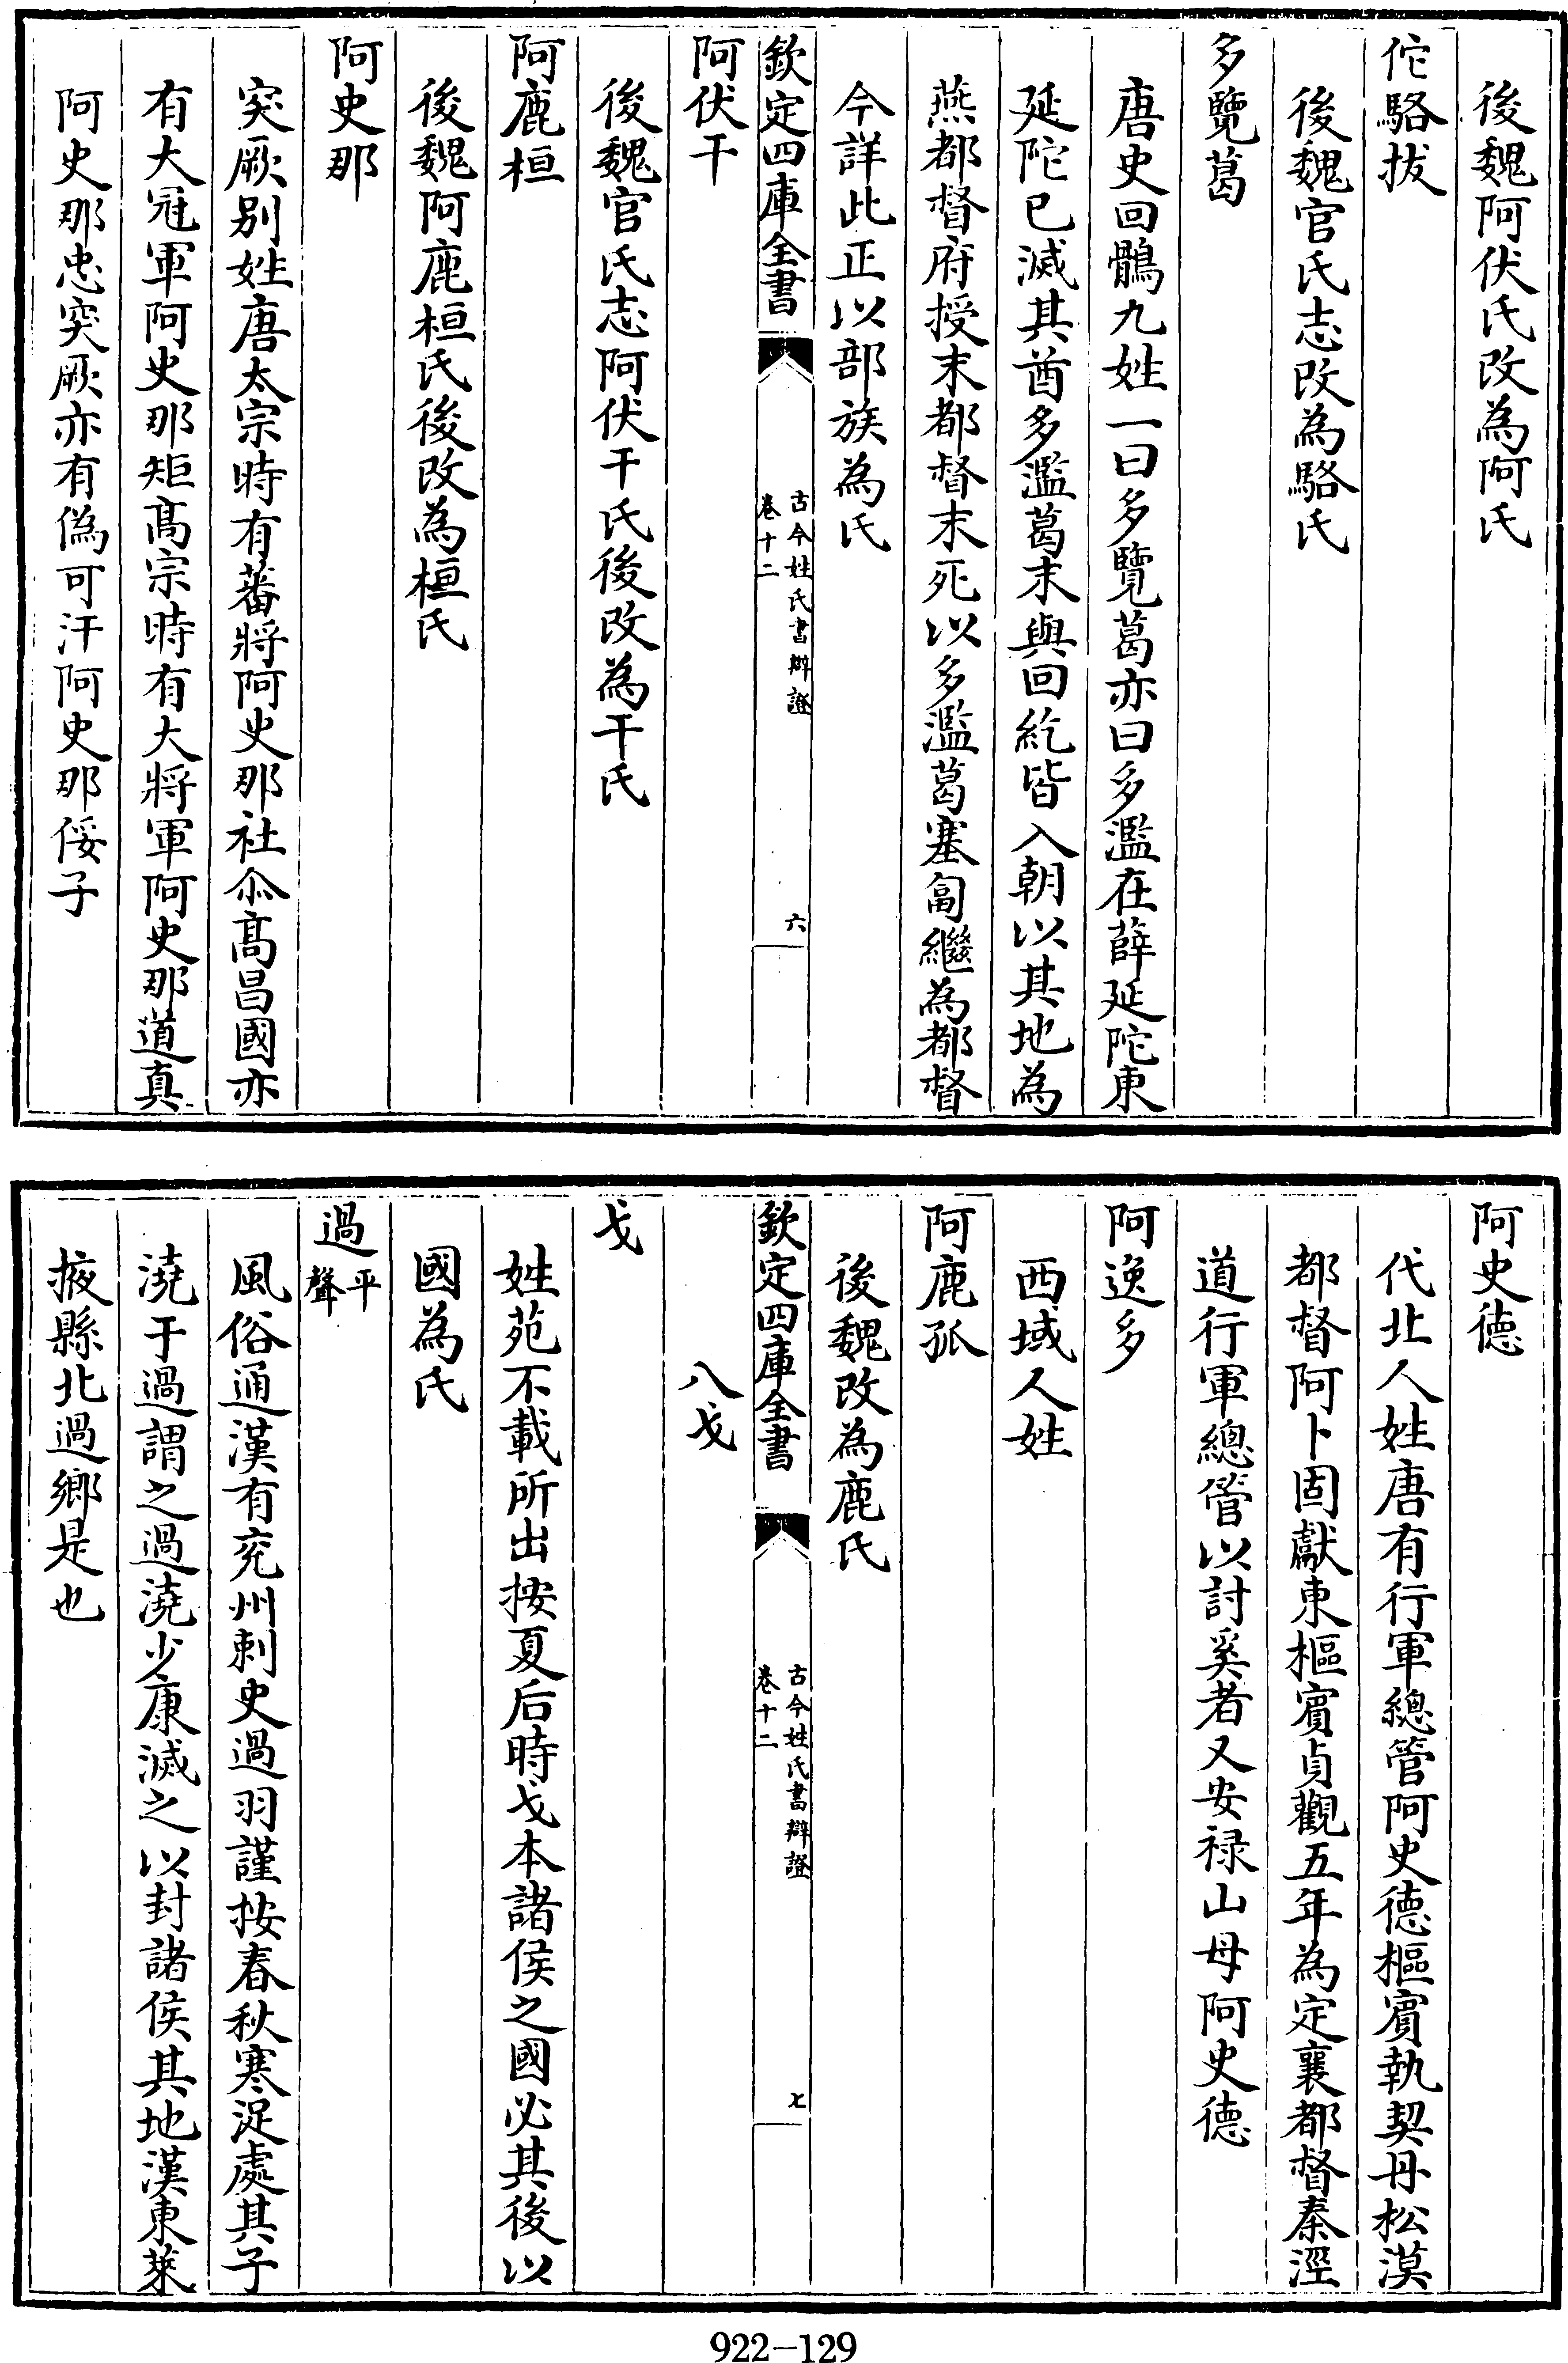 後魏阿伏氏改為阿氏
佗駱拔
後魏官氏志改為駱氏
多覽葛
唐史回鶻九姓一曰多覽葛亦曰多濫在薛延陀東
延陀已滅其酋多濫葛末與回紇皆入朝以其地為
燕都督府授末都督末死以多濫葛塞匐繼為都督
今詳此正以部族為氏
欽定四庫全書
古今姓氏書辯證
卷十二
六
阿伏干
後魏官氏志阿伏干氏後改為干氏
阿鹿桓
後魏阿鹿桓氏後改為桓氏
阿史那
突厥别姓唐太宗時有蕃將阿史那社尒髙昌國亦
有大冠軍阿史那矩髙宗時有大將軍阿史那道真
阿史那忠突厥亦有偽可汗阿史那俀子
阿史德
代北人姓唐有行軍總管阿史德樞賓執契丹松漠
都督阿卜固獻東樞賓貞觀五年為定襄都督秦涇
道行軍總管以討奚者又安禄山母阿史德
阿逸多
西域人姓
阿鹿孤
後魏改為鹿氏
欽定四庫全書
古今姓氏書辯證
卷十二
七
八戈
戈
姓苑不載所出按夏后時戈本諸侯之國必其後以
國為氏
過平聲
風俗通漢有兖州刺史過羽謹按春秋寒浞處其子
澆于過謂之過澆少康滅之以封諸侯其地漢東萊
掖縣北過鄉是也
922-129